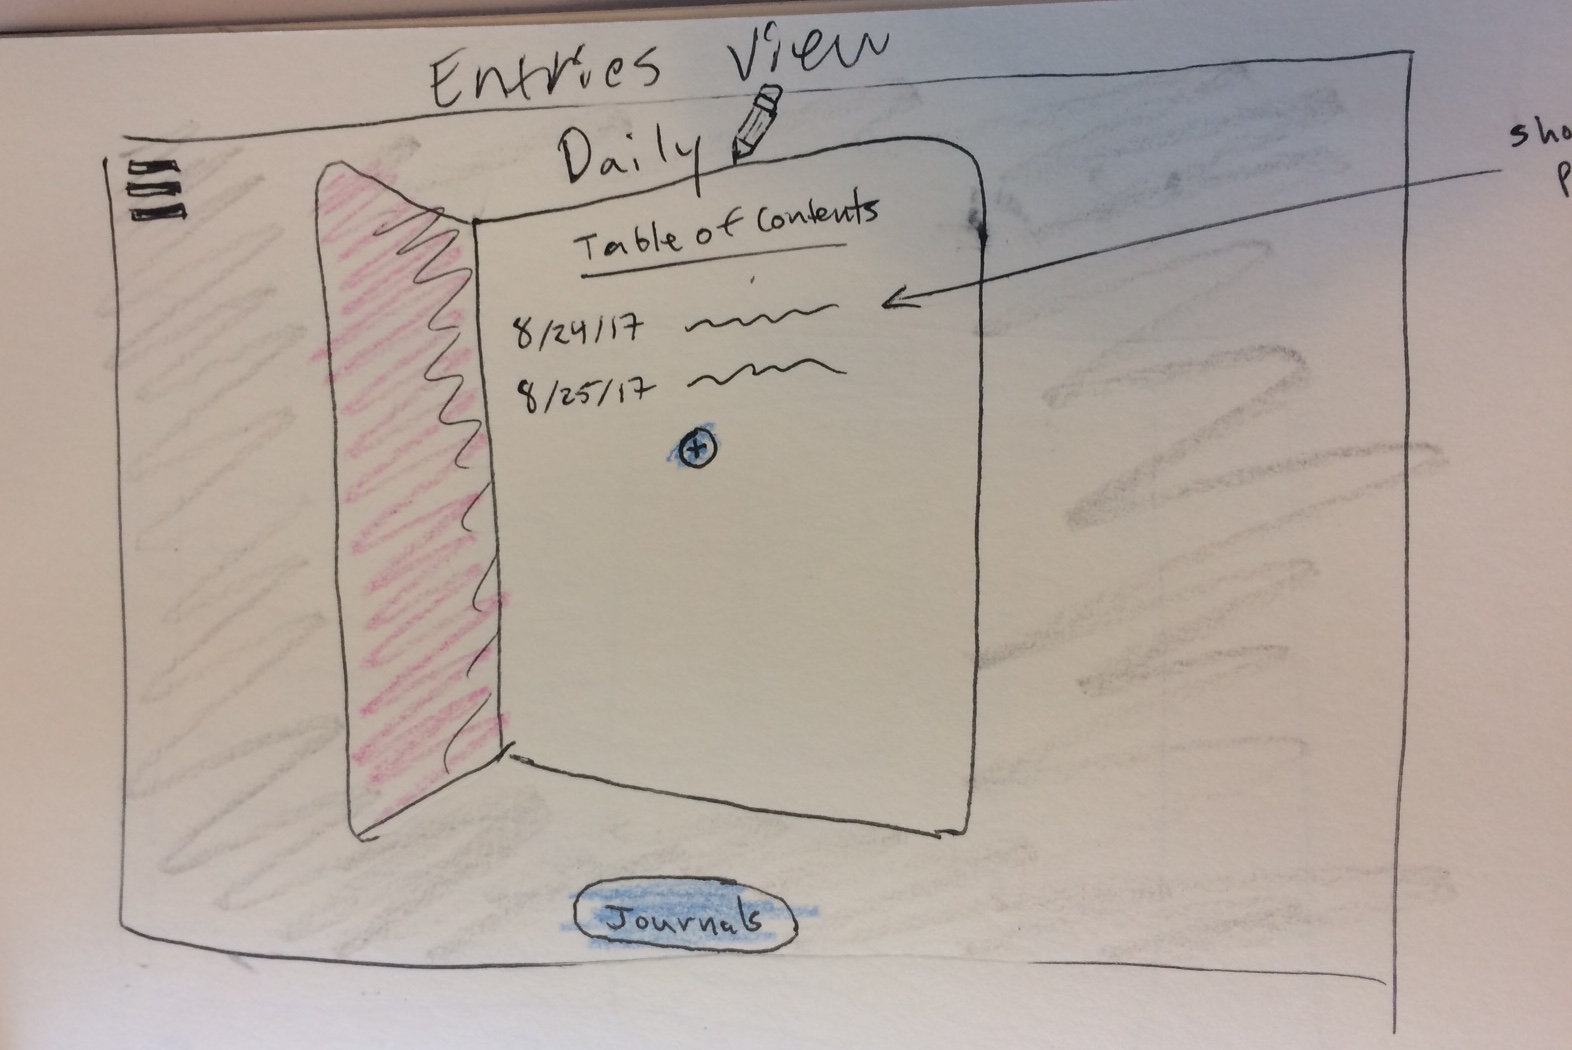 Entries View
Daily
Table of Contents
8/24/17
8/25/17
+
Journals